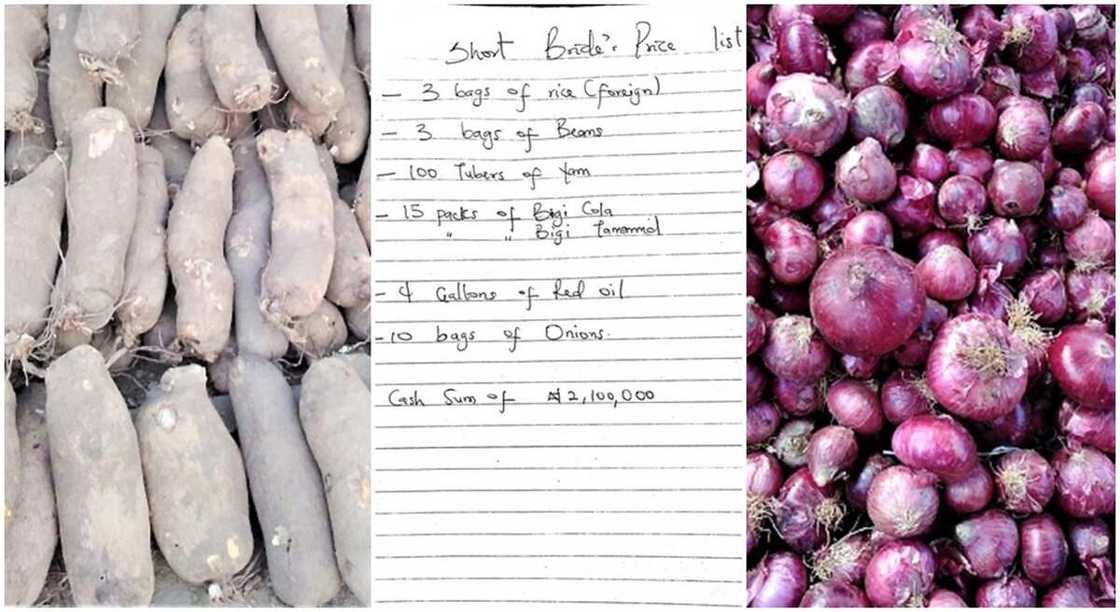 Short Bride's Price list
- 3 bags of rice (foreign)
- 3 bags of Beans
- 100 Tubers of Yam
- 15 packs of Bigi Cola
" " Bigi
- 4 Gallons of Red oil
- 10 bags of Onions.
Cash Sum of ₦2,100,000